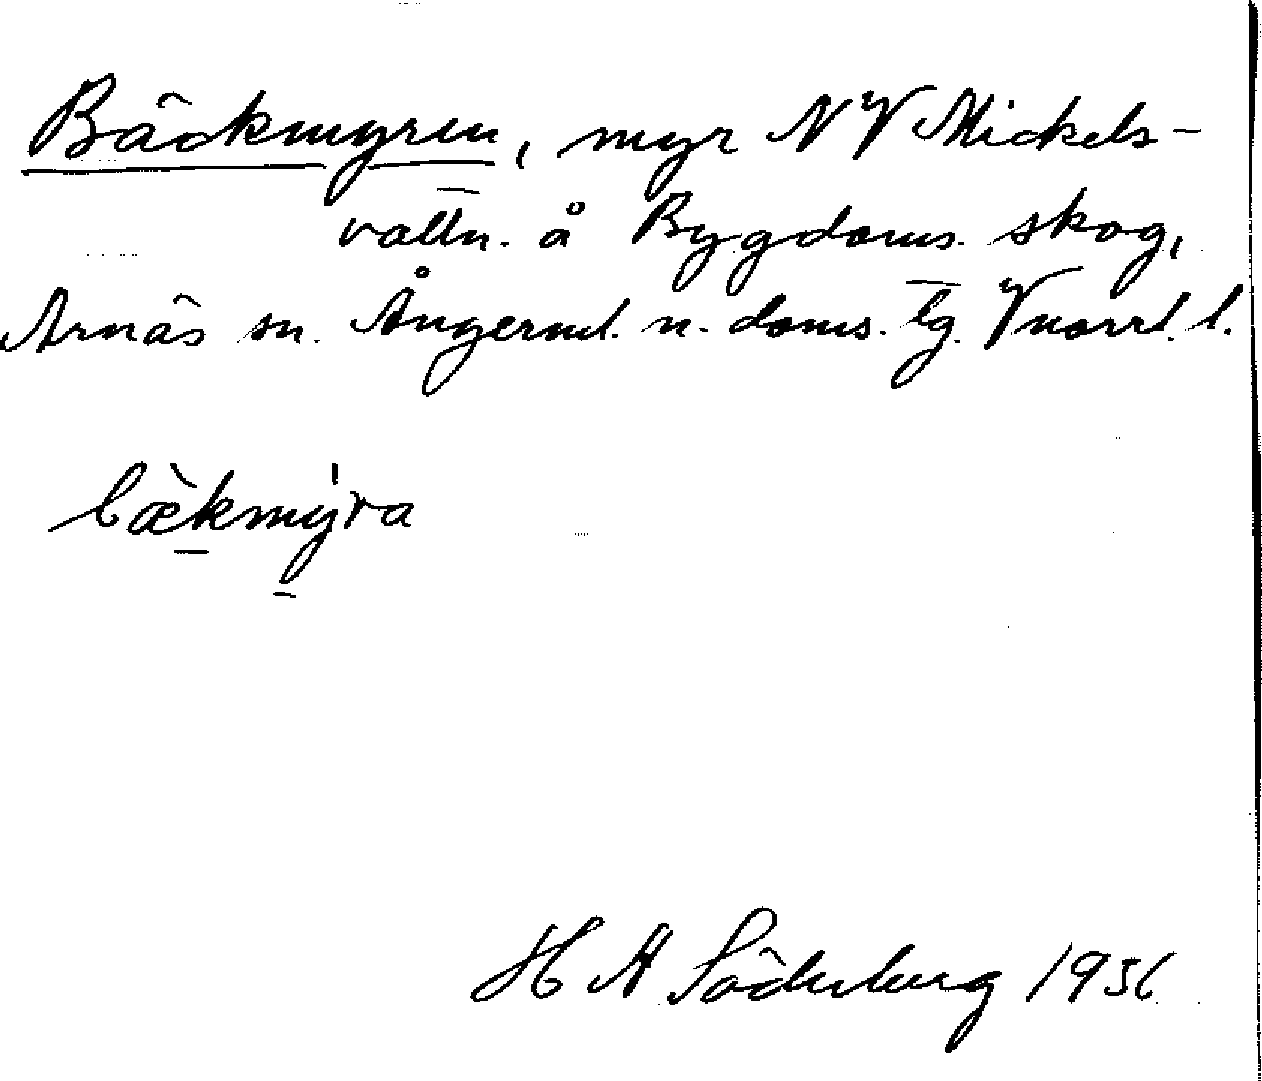 Bäckmyren, myr NV Mickels-
valln. å Bygdoms. skog,
Arnäs sn. Ångerml. n. doms. lg. Vnorrl. l.
bækmýra
H A Söderberg 1936